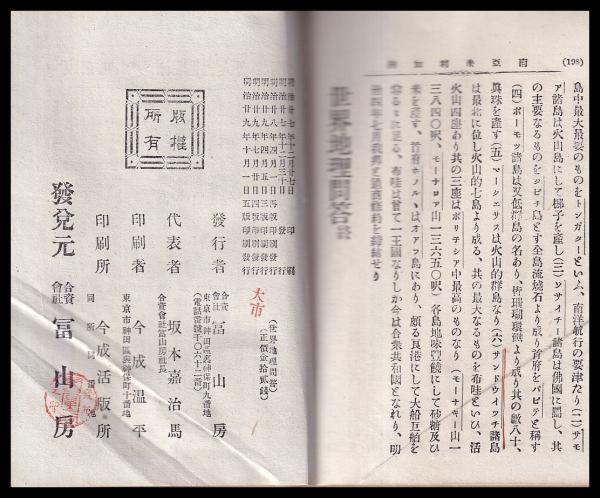 (198)
南亞米利加洲
島中最大最要のものをトンガターといふ、南洋航行の要津たり(二)サモ
ア諸島は火山島にして椰子を產し(三)ソサイチー諸島は佛國に屬し、其
の主要なるものをタヒチ島とす全島流燒石より成り首府をパピテと稱す
(四)ポーモツ諸島は又低群島の名あり、皆珊瑚環礁より成り其の數八十、
眞珠を產す(五)マーシェサスは火山的群島なり(六)サンドウイツチ諸島
は最北に位し火山的七島より成る、其の最大なるものを布哇といひ、活
火山四座あり其の三座はポリネシア中最高のものなり(モーナキー山一
三八四〇呎、モーナロア山一三六五〇呎)各島地味豐饒にして砂糖及ひ
米を產す、首府ホノルヽはオアフ島にあり、頗る良港にして大船巨舶を
容るヽに足る、布哇は曾て一王國なりしか今は合衆共和國となれり、明
治四年七月我邦と通商條約を締結せり
世界地理問答終
明治廿七年十二月廿七日印刷
明治廿七年十二月三十日發行
明治廿八年四月一日再版印刷發行
明治廿九年四月五日三版印刷發行
明治廿九年十月一日五版印刷發行
版權
所有
大市
(世界地理問答)
(正價金拾貳錢)
發行者
合資會社
冨山房
東京市神田區裏神保町九番地
(電話番號千〇六十二番)
代表者
合資會社冨山房社長
坂本嘉治馬
印刷者
東京市神田區裏神保町十番地
今成溫平
印刷所
同所同番地
今成活版所
發兌元
合資會社
冨山房